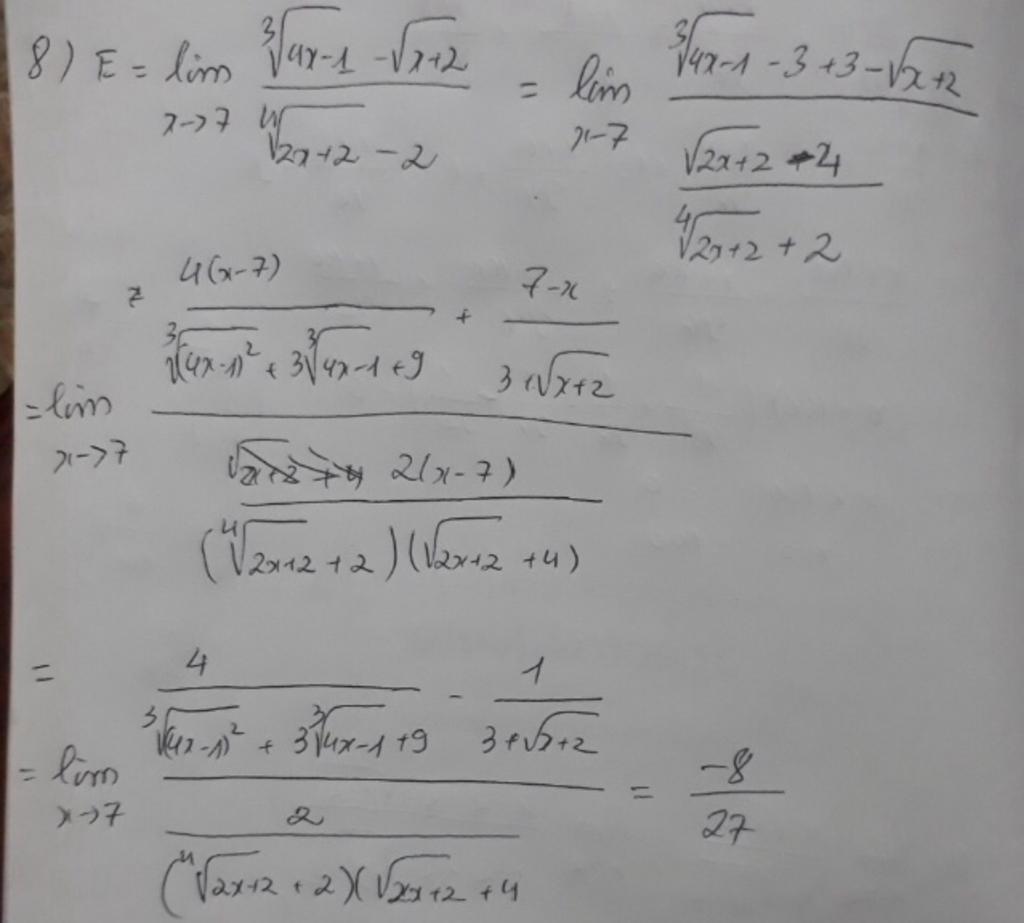 8) E = lim x->7 (∛(4x-1) - √(x+2)) / (∜(2x+2) - 2) = lim x-7 (∛(4x-1) - 3 + 3 - √(x+2)) / ((√(2x+2) - 4) / (∜(2x+2) + 2))
= lim x->7 (4(x-7) / (∛(4x-1)² + 3∛(4x-1) + 9) + (7-x) / (3 + √(x+2))) / (2(x-7) / ((∜(2x+2) + 2)(√(2x+2) + 4)))
=
= lim x->7 (4 / (∛(4x-1)² + 3∛(4x-1) + 9) - 1 / (3 + √(x+2))) / (2 / ((∜(2x+2) + 2)(√(2x+2) + 4) = -8/27